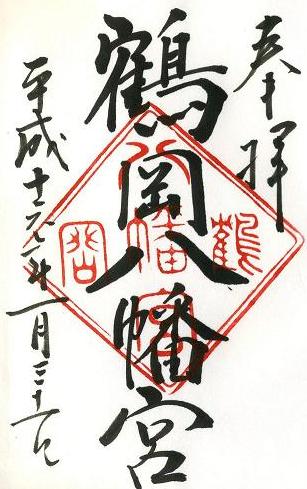 奉拝
鶴岡八幡宮
平成十六年一月
鶴
八幡宮
岡